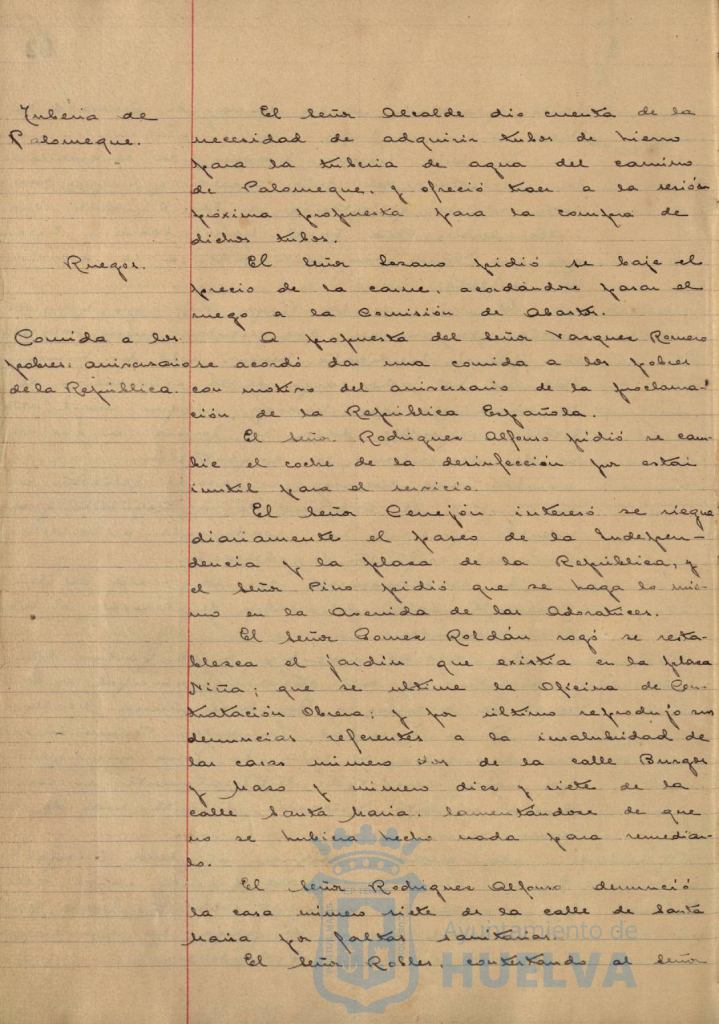 Tuberia de
Palomeque.
El Señor Alcalde dio cuenta de la
necesidad de adquirir tubos de hierro
para la tuberia de agua del camino
de Palomeque, y ofreció traer a la sesión
próxima propuesta para la compra de
dichos tubos.
Ruegos.
El Señor Lozano pidió se baje el
precio de la carne, acordándose pasar el
ruego a la Comisión de Abastos.
Comida a los
pobres: aniversario
de la República.
A propuesta del Señor Vazquez Romero
se acordó dar una comida a los pobres
con motivo del aniversario de la proclama-
ción de la República Española.
El Señor Rodriguez Alfonso pidió se cam-
bie el coche de la desinfección por estar
inutil para el servicio.
El Señor Cerrejón interesó se riegue
diariamente el paseo de la Indepen-
dencia y la plaza de la República, y
el Señor Pino pidió que se haga lo mis-
mo en la Avenida de las Adoratrices.
El Señor Gomez Roldán rogó se resta-
blezca el jardin que existia en la plaza
Niña; que se ultime la Oficina de Con-
tratación Obrera; y por último reprodujo sus
denuncias referentes a la insalubridad de
las casas número dos de la calle Burgos
y Mazo y número diez y siete de la
calle Santa Maria, lamentándose de que
no se hubiera hecho nada para remediar-
lo.
El Señor Rodriguez Alfonso denunció
la casa número siete de la calle de Santa
Maria por faltas sanitarias.
El Señor Robles, contestando al Señor
Ayuntamiento de
HUELVA